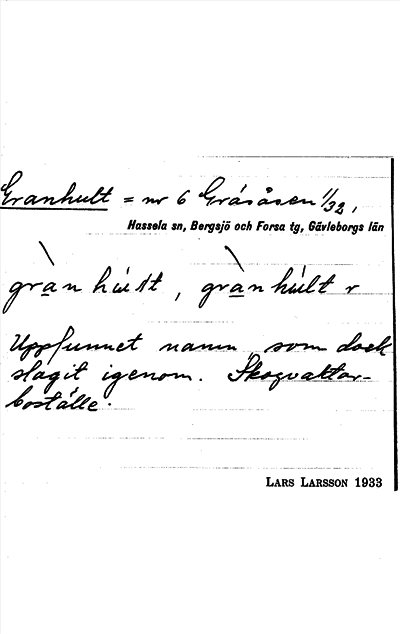 Granhult = nr 6 Gråsåsen 1/32,
Hassela sn, Bergsjö och Forsa tg, Gävleborgs län
gràn húlt, gràn húlt r
Uppfunnet namn, som dock
slagit igenom. Skogvaktar-
boställe.
LARS LARSSON 1933